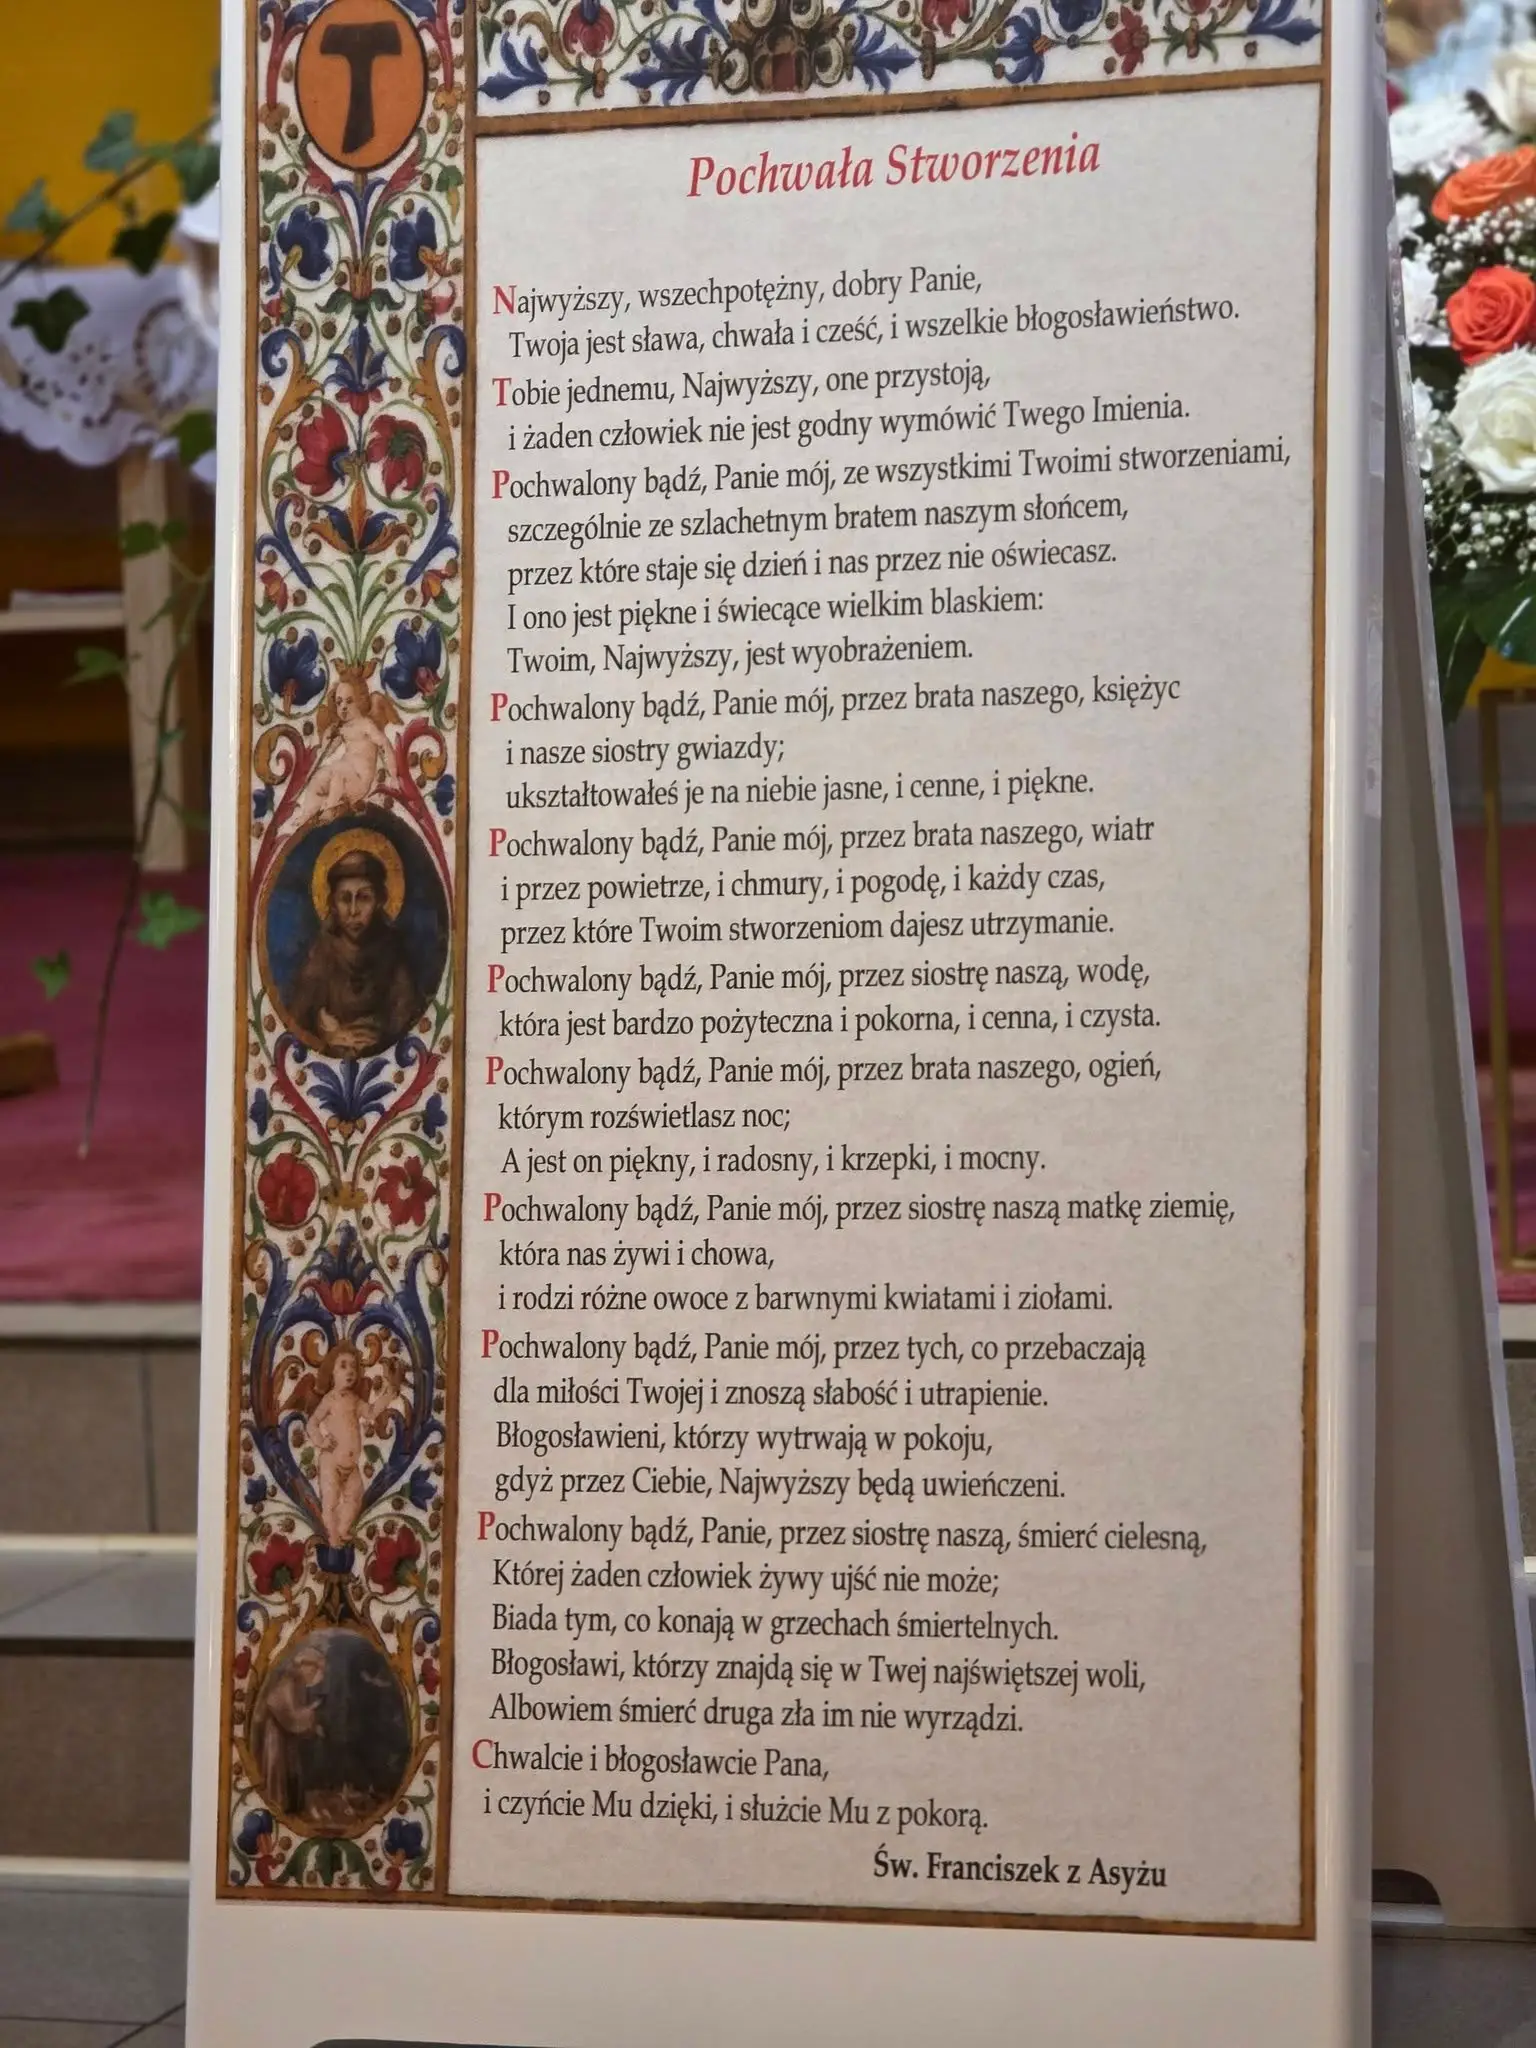 Pochwała Stworzenia
Najwyższy, wszechpotężny, dobry Panie,
Twoja jest sława, chwała i cześć, i wszelkie błogosławieństwo.
Tobie jednemu, Najwyższy, one przystoją,
i żaden człowiek nie jest godny wymówić Twego Imienia.
Pochwalony bądź, Panie mój, ze wszystkimi Twoimi stworzeniami,
szczególnie ze szlachetnym bratem naszym słońcem,
przez które staje się dzień i nas przez nie oświecasz.
I ono jest piękne i świecące wielkim blaskiem:
Twoim, Najwyższy, jest wyobrażeniem.
Pochwalony bądź, Panie mój, przez brata naszego, księżyc
i nasze siostry gwiazdy;
ukształtowałeś je na niebie jasne, i cenne, i piękne.
Pochwalony bądź, Panie mój, przez brata naszego, wiatr
i przez powietrze, i chmury, i pogodę, i każdy czas,
przez które Twoim stworzeniom dajesz utrzymanie.
Pochwalony bądź, Panie mój, przez siostrę naszą, wodę,
która jest bardzo pożyteczna i pokorna, i cenna, i czysta.
Pochwalony bądź, Panie mój, przez brata naszego, ogień,
którym rozświetlasz noc;
A jest on piękny, i radosny, i krzepki, i mocny.
Pochwalony bądź, Panie mój, przez siostrę naszą matkę ziemię,
która nas żywi i chowa,
i rodzi różne owoce z barwnymi kwiatami i ziołami.
Pochwalony bądź, Panie mój, przez tych, co przebaczają
dla miłości Twojej i znoszą słabość i utrapienie.
Błogosławieni, którzy wytrwają w pokoju,
gdyż przez Ciebie, Najwyższy będą uwieńczeni.
Pochwalony bądź, Panie, przez siostrę naszą, śmierć cielesną,
Której żaden człowiek żywy ujść nie może;
Biada tym, co konają w grzechach śmiertelnych.
Błogosławi, którzy znajdą się w Twej najświętszej woli,
Albowiem śmierć druga zła im nie wyrządzi.
Chwalcie i błogosławcie Pana,
i czyńcie Mu dzięki, i służcie Mu z pokorą.
Św. Franciszek z Asyżu